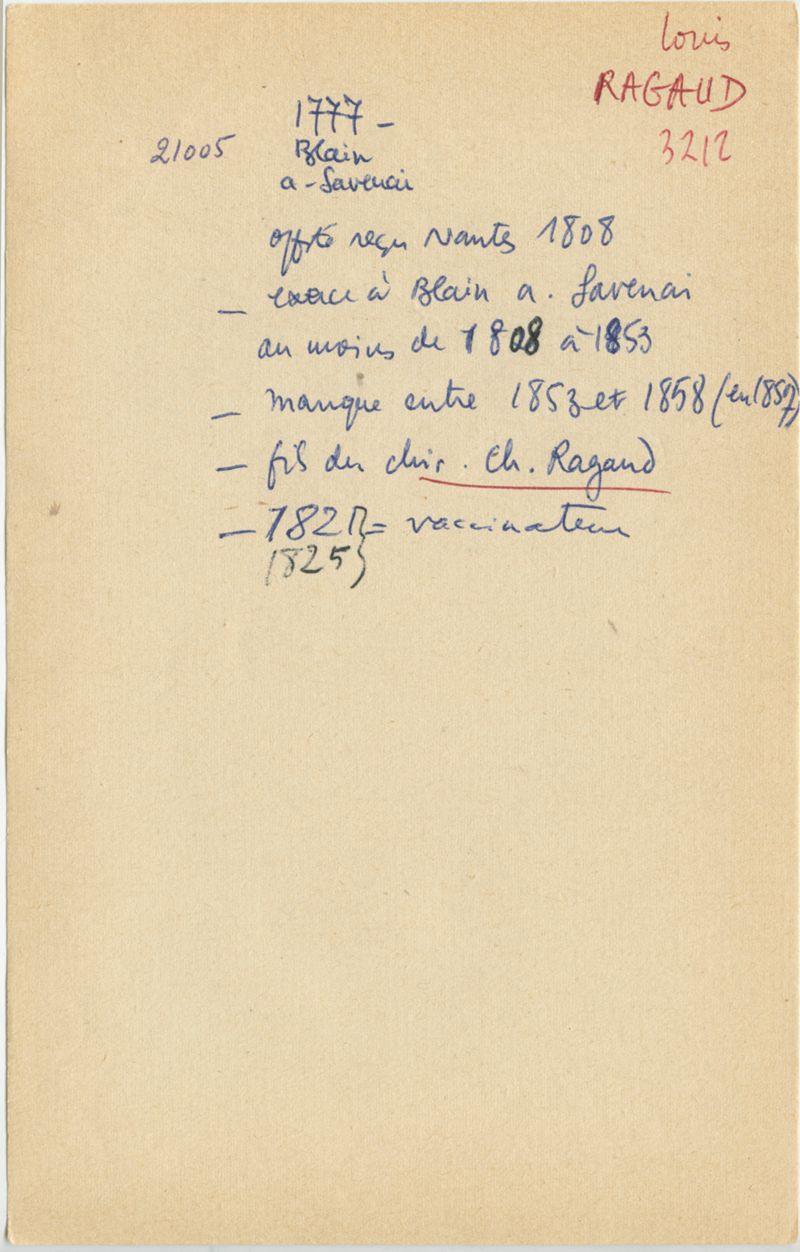 Louis
RAGAUD
3212
1777 -
21005 Blain
a - Savenai
reçu Nantes 1808
- exerce à Blain a. Savenai
au moins de 1808 à 1853
- manque entre 1853 et 1858 (en 1857)
- fils du chir. Ch. Ragaud
- = vaccinateur
1825}